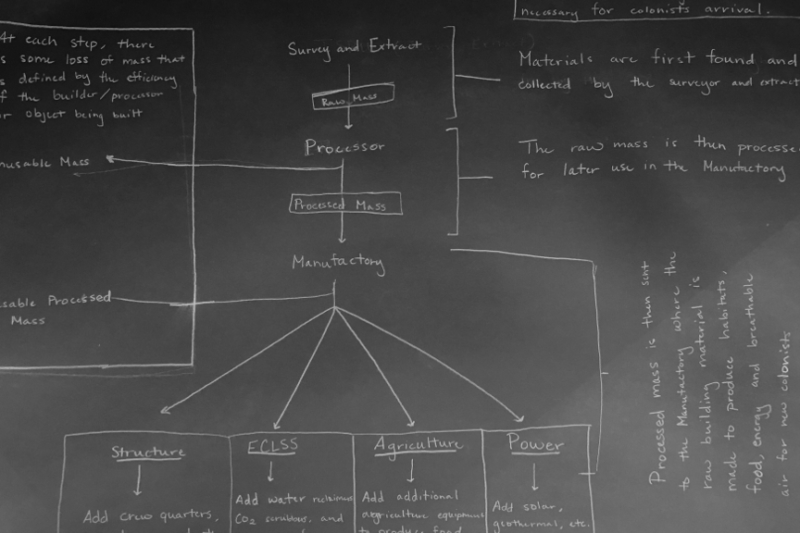 necessary for colonists arrival.
At each step, there
some loss of mass that
defined by the efficiency
the builder/processor
object being built
Survey and Extract
Raw Mass
Materials are first found and
collected by the surveyor and extract
Processor
The raw mass is then processe
for later use in the Manufactory
Mass
Processed Mass
Manufactory
Processed
Mass
Processed mass is then sent
to the Manufactory where the
raw building material is
made to produce habitats,
food, energy and breathable
air for new colonists
Structure
ECLSS
Agriculture
Power
Add crew quarters,
Add water
CO2 scrubbers, and
Add additional
agriculture equipment
to produce food
Add solar,
geothermal, etc.